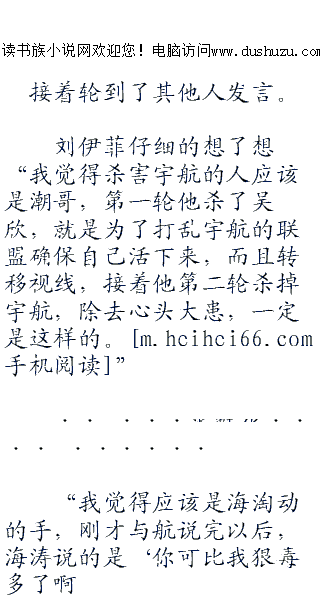 读书族小说网欢迎您！电脑访问www.dushuzu.com
接着轮到了其他人发言。
刘伊菲仔细的想了想
“我觉得杀害宇航的人应该
是潮哥，第一轮他杀了吴
欣，就是为了打乱宇航的联
盟确保自己活下来，而且转
移视线，接着他第二轮杀掉
宇航，除去心头大患，一定
是这样的。[m.hcihci66.com
手机阅读]”
“我觉得应该是海淘动
的手，刚才与航说完以后，
海涛说的是‘你可比我狠毒
多了啊